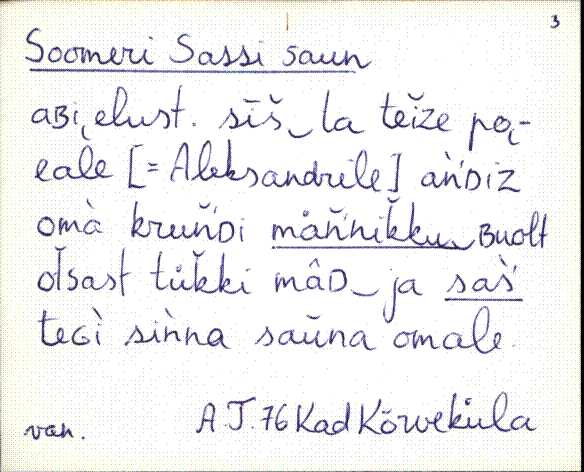 3
Soomeri Sassi saun
aʙi̯elust. sīš‿ta teĭze po̭-
eàle [= Aleksandrile] ań̆ᴅiz
omà kruń̆ᴅi måń̆nik̆ku‿ʙuolt
ot̆sast tük̆ki mâᴅ‿ja saš̀
teɢì siǹna saŭna omale.
van. A.T. 76 Kad Kõrveküla